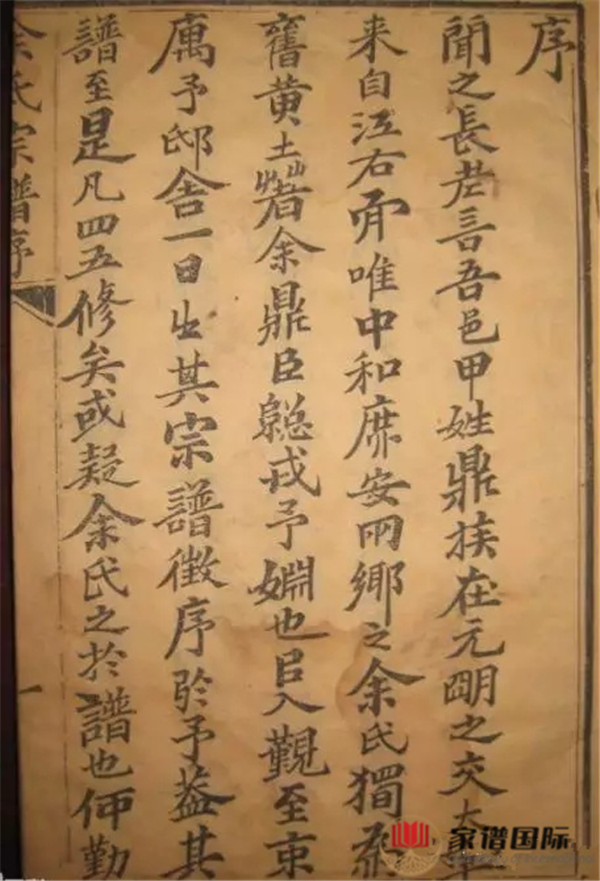 序
聞之長老言吾邑甲姓鼎族在元明之交大率
来自江右而唯中和庶安兩鄉之余氏獨爲
舊黄土著余鼎臣總戎予婣也臣入覲至京
寓予邸舍一日出其宗譜徵序於予葢其
譜至是凡四五修矣或疑余氏之於譜也何勤
余氏宗譜序
一
家谱国际